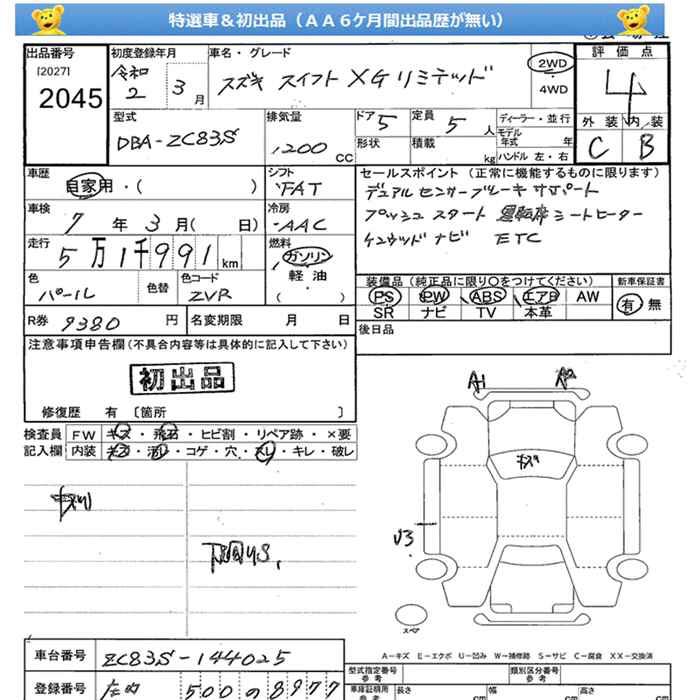 特選車＆初出品（ＡＡ６ケ月間出品歴が無い）
出品番号 初度登録年月 車名・グレード 評価点
[2027]
2045
令和 2 年 3 月
スズキ スイフト XG リミテッド
2WD
4WD
4
型式 排気量 ドア 定員 ディーラー・並行
DBA-ZC83S 1200 CC 5 5 人
形状 積載 kg
モデル年式 年
ハンドル 左・右
外装 内装
C B
車歴 シフト セールスポイント（正常に機能するものに限ります）
自家用・( ) FAT
デュアルセンサーブレーキサポート
車検 冷房
7 年 3 月( 日) AAC
プッシュスタート 運転席シートヒーター
走行 燃料
5万1千991km ガソリン
ケンウッドナビ ETC
軽油
( )
色 色替 色コード
パール ZVR
装備品（純正品に限り〇をつけてください） 新車保証書
PS PW ABS エアB AW 有 無
SR ナビ TV 本革
R券 9380 円 名変期限 月 日
後日品
注意事項申告欄(不具合内容等は具体的に記入して下さい)
初出品
修復歴 有 〔箇所 〕
検査員 FW キズ・飛石・ヒビ割・リペア跡・×要
記入欄 内装 キズ・汚レ・コゲ・穴・スレ・キレ・破レ
A1
U3
スペア
A－キズ E－エクボ U－凹み W－補修跡 S－サビ C－腐食 XX－交換済
車台番号 ZC83S-144025
登録番号 500 8977
型式指定番号 類別区分番号
参考 参考
車庫証明用 長さ 幅 高さ
参考 cm cm cm